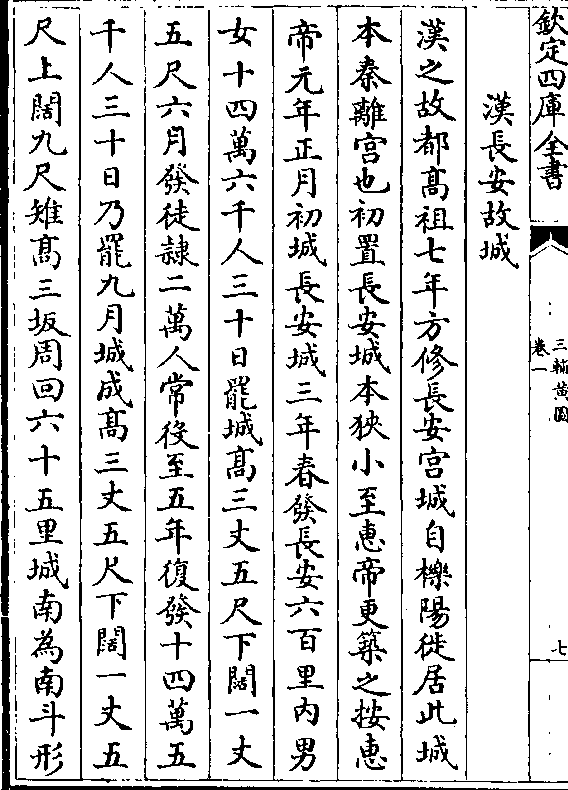 欽定四庫全書
三輔黃圖
卷一
七
漢長安故城
漢之故都髙祖七年方修長安宫城自櫟陽徙居此城
本秦離宫也初置長安城本狹小至惠帝更築之按惠
帝元年正月初城長安城三年春發長安六百里内男
女十四萬六千人三十日罷城髙三丈五尺下闊一丈
五尺六月發徒隷二萬人常役至五年復發十四萬五
千人三十日乃罷九月城成髙三丈五尺下闊一丈五
尺上闊九尺雉髙三坂周回六十五里城南為南斗形